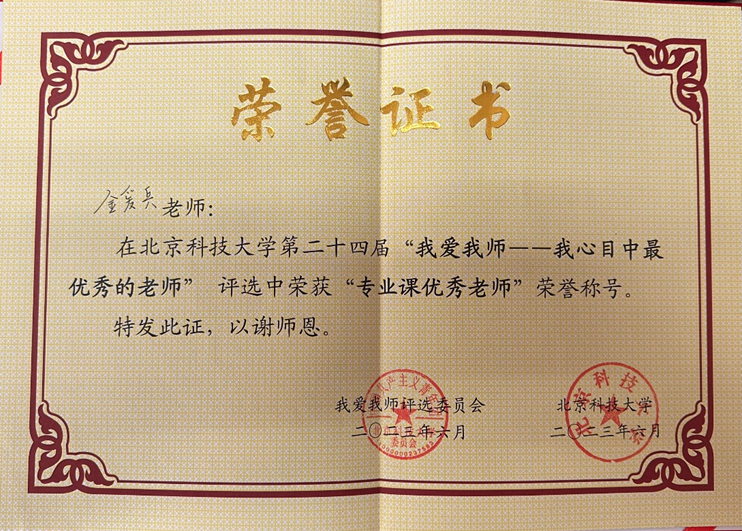 荣誉证书
金爱兵 老师：
在北京科技大学第二十四届“我爱我师——我心目中最
优秀的老师” 评选中荣获“专业课优秀老师”荣誉称号。
特发此证，以谢师恩。
我爱我师评选委员会 北京科技大学
二〇二三年六月 二〇二三年六月
北京科技大学